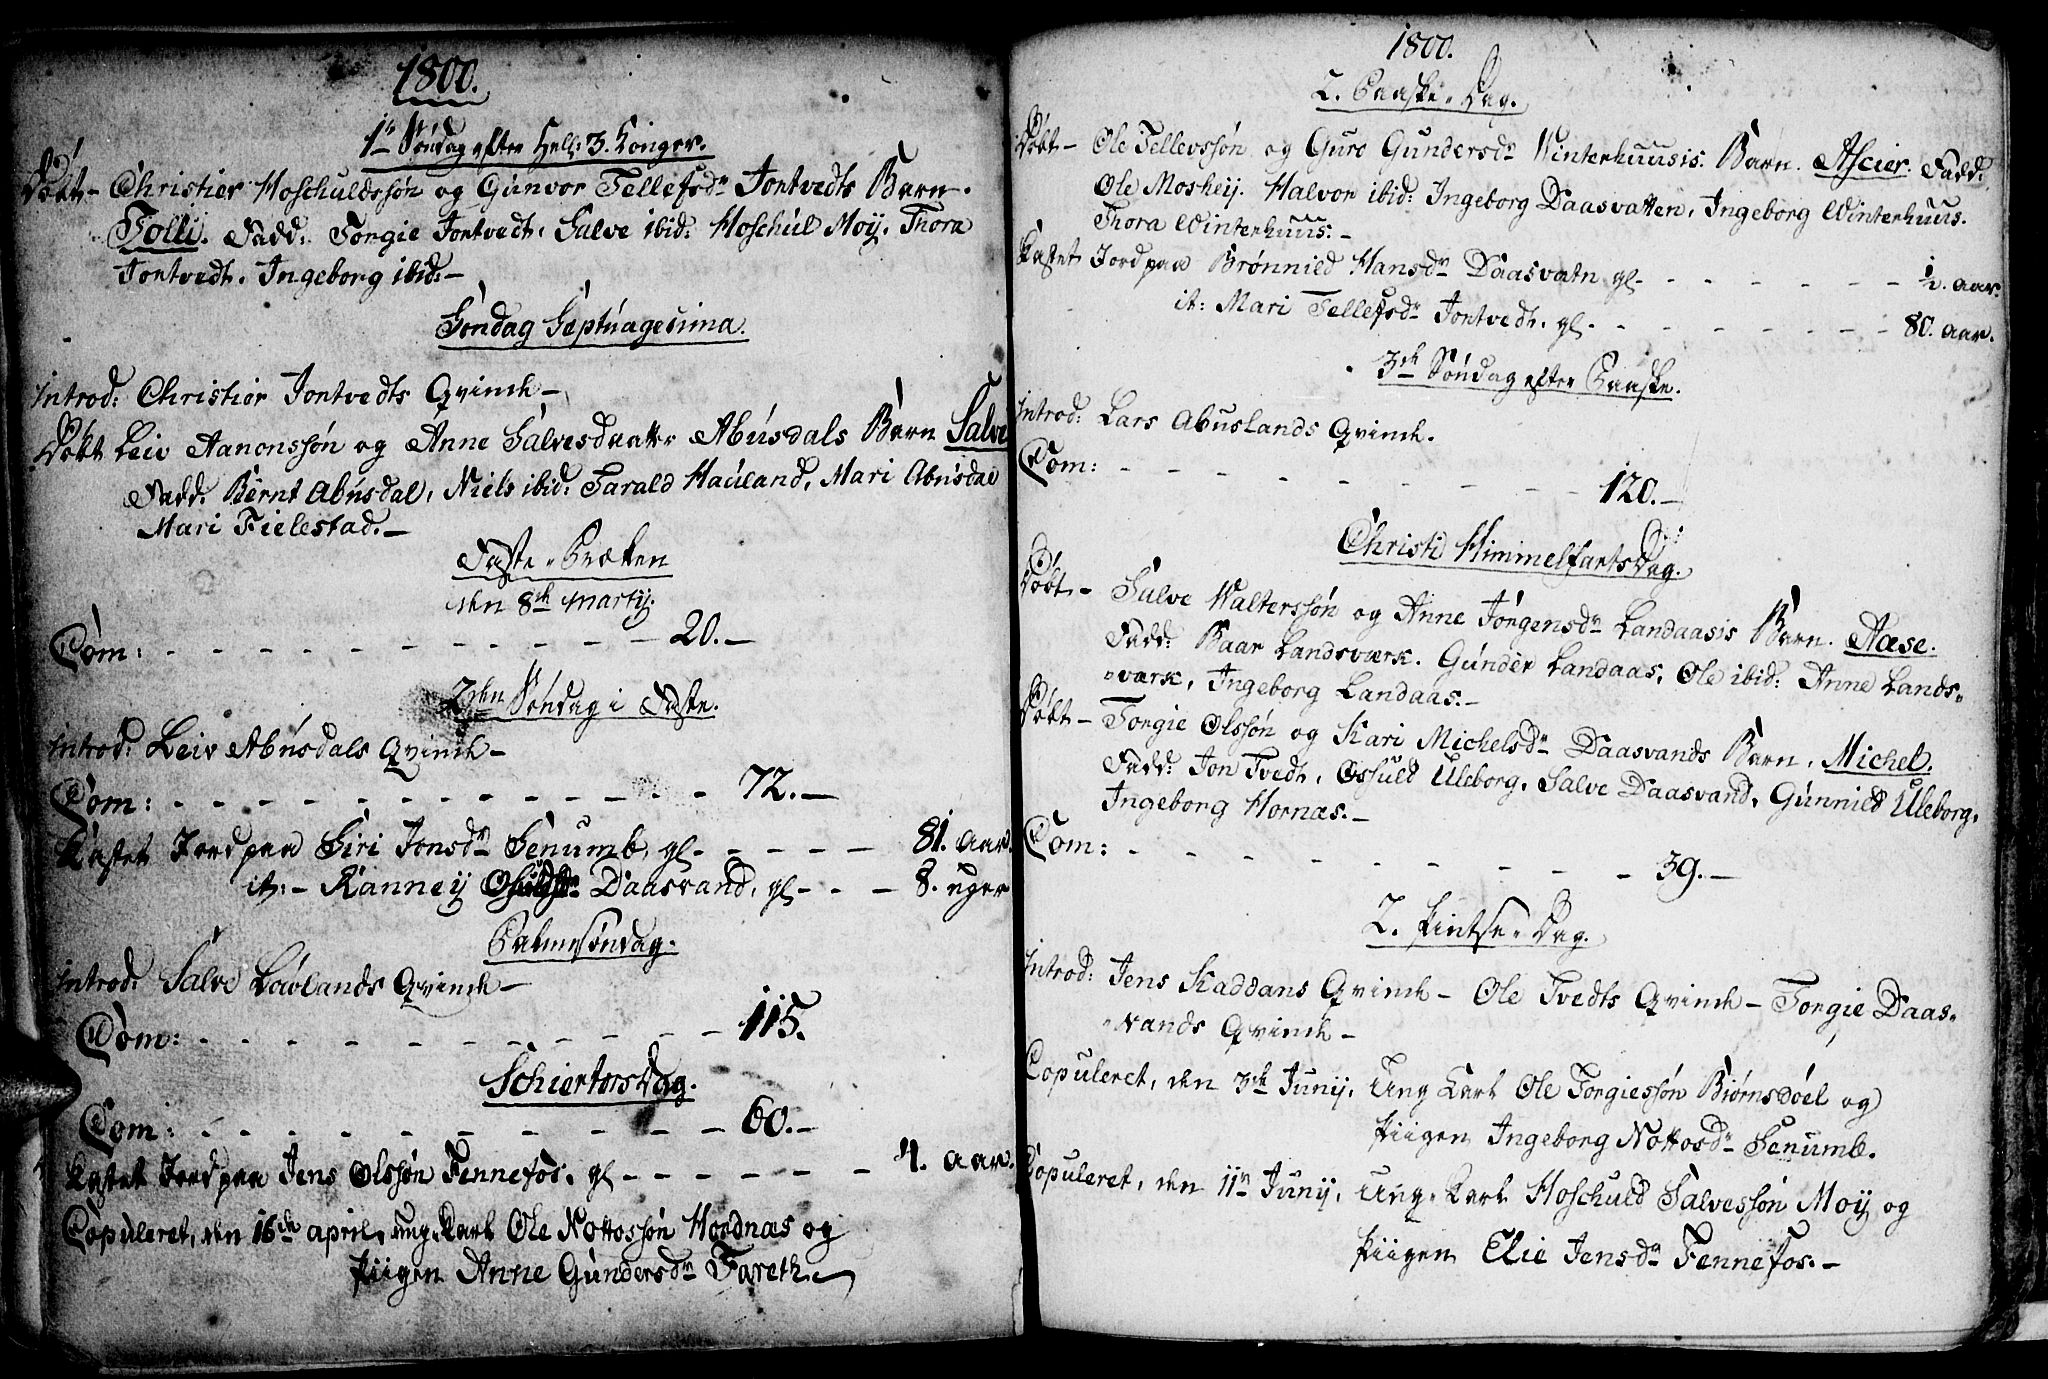 1800.
1te Søndag efter Hell: 3. Konger.
Døbt – Christier Hoschuldssøn og Gunvor Tellefsdr Jontvedts Barn.
Tolli. Fadd: Torgie Jontvedt, Salve ibid: Hoschul Moy. Thora
Jontvedt. Ingeborg ibid: –
Søndag Septuagesima.
Introd: Christier Jontvedts Qvinde –
Døbt Leiv Aanonssøn og Anne Salvesdaatter Abusdals Barn Salve
Fadd: Bernt Abusdal, Niels ibid: Tarald Hauland, Mari Abusdal
Mari Fielestad. –
Faste-Præken
den 8de Martij.
Com: – – – – – – – – – 20. –
2den Søndag i Faste.
Introd: Leiv Abusdals Qvinde –
Com: – – – – – – – – – 72. –
Kastet Jord paa Siri Jonsdr Senumb, gl – – – – – 81. aar.
it: – Ranney Daasvand, gl – – – 8. uger
Palmesøndag.
Introd: Salve Løvlands Qvinde –
Com: – – – – – – – – – 115.
Schiertorsdag.
Com: – – – – – – – – – 60. –
Kastet Jord paa Jens Olssøn Fennefos, gl – – – – – – 4. aar.
Copuleret, den 16de april, ung Karl Ole Nottossøn Hordnæs og
Piigen Anne Gundersdr Fareth
1800.
2. Paaske-Dag.
Døbt – Ole Tellevssøn og Guro Gundersdr Winterhuusis Barn. Ascier. Fadd:
Ole Mosheij. Halvor ibid: Ingeborg Daasvatten, Ingeborg Winterhuus.
Thora Winterhuus: –
Kastet Jord paa Brønnild Hansdr Daasvatn gl – – – – – – 1/2. aar.
it: Mari Tellefsdr Jontvedt. gl – – – – – – 80. aar.
3de Søndag efter Paaske.
Introd: Lars Abuslands Qvinde.
Com: – – – – – – – – 120. –
Christi Himmelfarts Dag.
Døbt – Salve Walterssøn og Anne Jørgensdr Landaasis Barn. Aase.
Fadd: Baar Landsværk. Gunder Landaas, Ole ibid: Anne Lands-
værk, Ingeborg Landaas. –
Døbt – Torgie Olssøn og Kari Michelsdr Daasvands Barn, Michel.
Fadd: Jon Tvedt, Osculd Uleborg, Salve Daasvand, Gunnild Uleborg,
Ingeborg Hornæs. –
Com: – – – – – – – – – 39. –
2. Pintse-Dag.
Introd: Jens Kaddans Qvinde – Ole Tvedts Qvinde – Torgie Daas-
vands Qvinde –
Copuleret, den 3de Junij, Ung Karl Ole Torgiessøn Biørnsdøel og
Piigen Ingeborg Nottosdr Senumb.
Copuleret, den 11te Junij, Ung-Karl Hoschuld Salvessøn Moy og
Piigen Elie Jensdr Fennefos. –